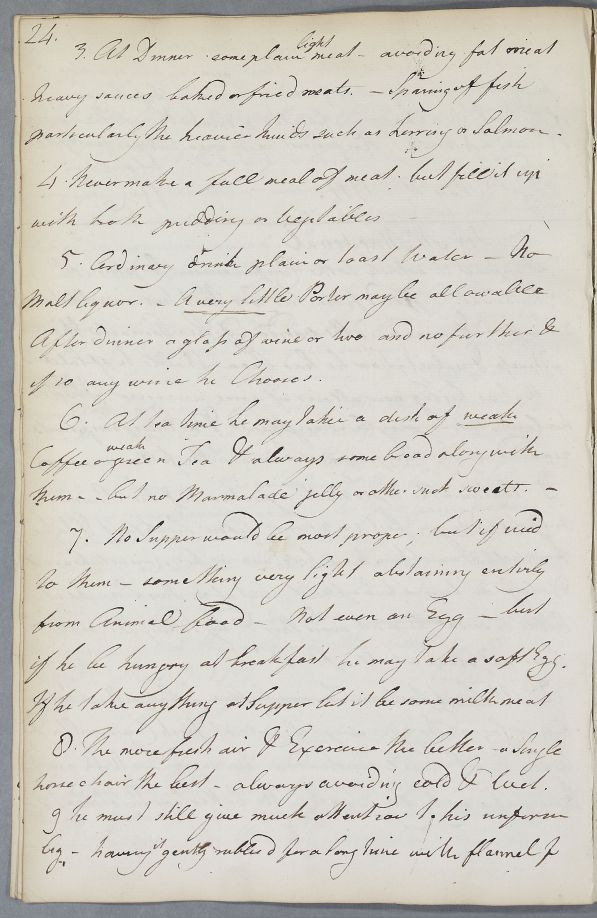 24.
3. At Dinner some plain light meat – avoiding fat meat
heavy sauces baked or fried meats. – Sparing of fish
particularly the heavier kinds such as herring or Salmon –
4. Never make a full meal of meat but fill it up
with broth pudding or Vegetables
5. Ordinary drink plain or toast Water – No
Malt liquor. – A very little Porter may be allowable
After dinner a glass of wine or two and no further &
if so any wine he Chooses.
6. At tea time he may take a dish of weak
Coffee or weak green Tea & always some bread along with
them – – but no Marmalade jelly or other such sweets. –
7. No Supper would be most proper, but if used
to them – something very light abstaining entirely
from Animal food – Not even an Egg – but
if he be hungry at breakfast he may take a soft Egg.
If he take any thing at Supper let it be some milk meat
8. The more fresh air & Exercise the better – a Single
horse chair the best – always avoiding cold & wet.
9 he must still give much attention to his
leg – having it gently rubbed for a long time with flannel